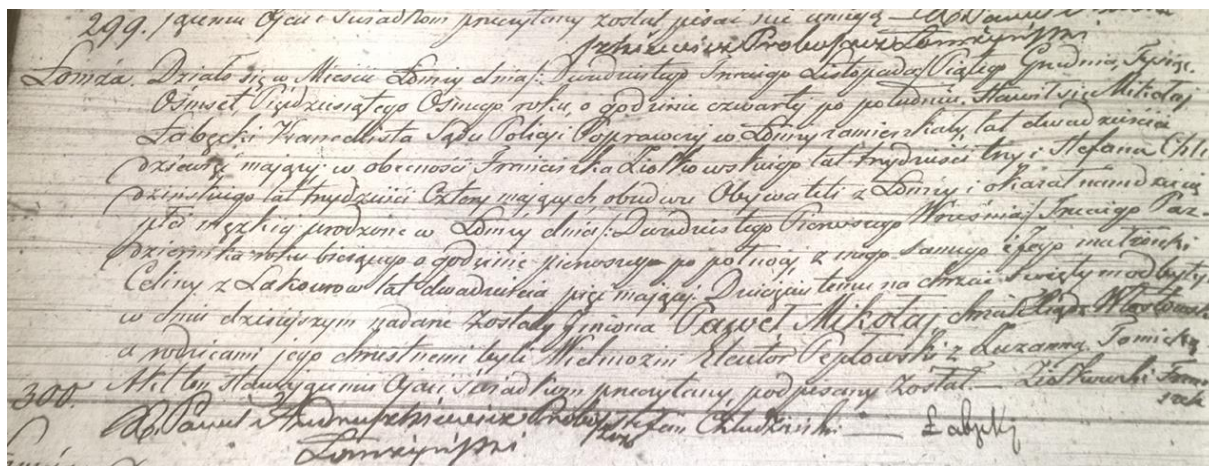 299. jącemu Ojcu i Świadkom przeczytany został pisać nie umieją
Proboszcz Łomżyński
Łomża. Działo się w Mieście Łomży dnia /: Dwudziestego Trzeciego Listopada / Piątego Grudnia, Tysiąc
Ośmset Pięćdziesiątego Ósmego roku, o godzinie czwarty po południu. Stawił się Mikołaj
Łabęcki Kancellista Sądu Policyi Poprawczy w Łomży zamieszkały, lat dwadzieścia
dziewięć mający w obecności Franciszka Ziółkowskiego lat trzydzieści trzy, i Stefana Chlu
dzińskiego lat trzydzieści Cztery mających obudwu Obywateli z Łomży i okazał nam dziecię
płci męzkiej urodzone w Łomży dnia /: Dwudziestego Pierwszego Września / Trzeciego Paź-
dziernika roku bieżącego o godzinie pierwszej po północy z niego samego i jego małżonki
Celiny z lat dwadzieścia pięć mającej. Dziecięciu temu na chrzcie świętym odbytym
w dniu dzisiejszym nadane zostały imiona Paweł Mikołaj, Xiądz
a rodzicami jego chrzestnemi byli Wielmożni Eleuter Pepłowski z Zuzanną
300. Akt ten stawającemu Ojcu i Świadkom przeczytany, podpisany został. — Ziółkowski Fran
ciszek
X. Paweł Andruszkiewicz Probosz Stefan Chludziński — Łabęcki
Łomżyński